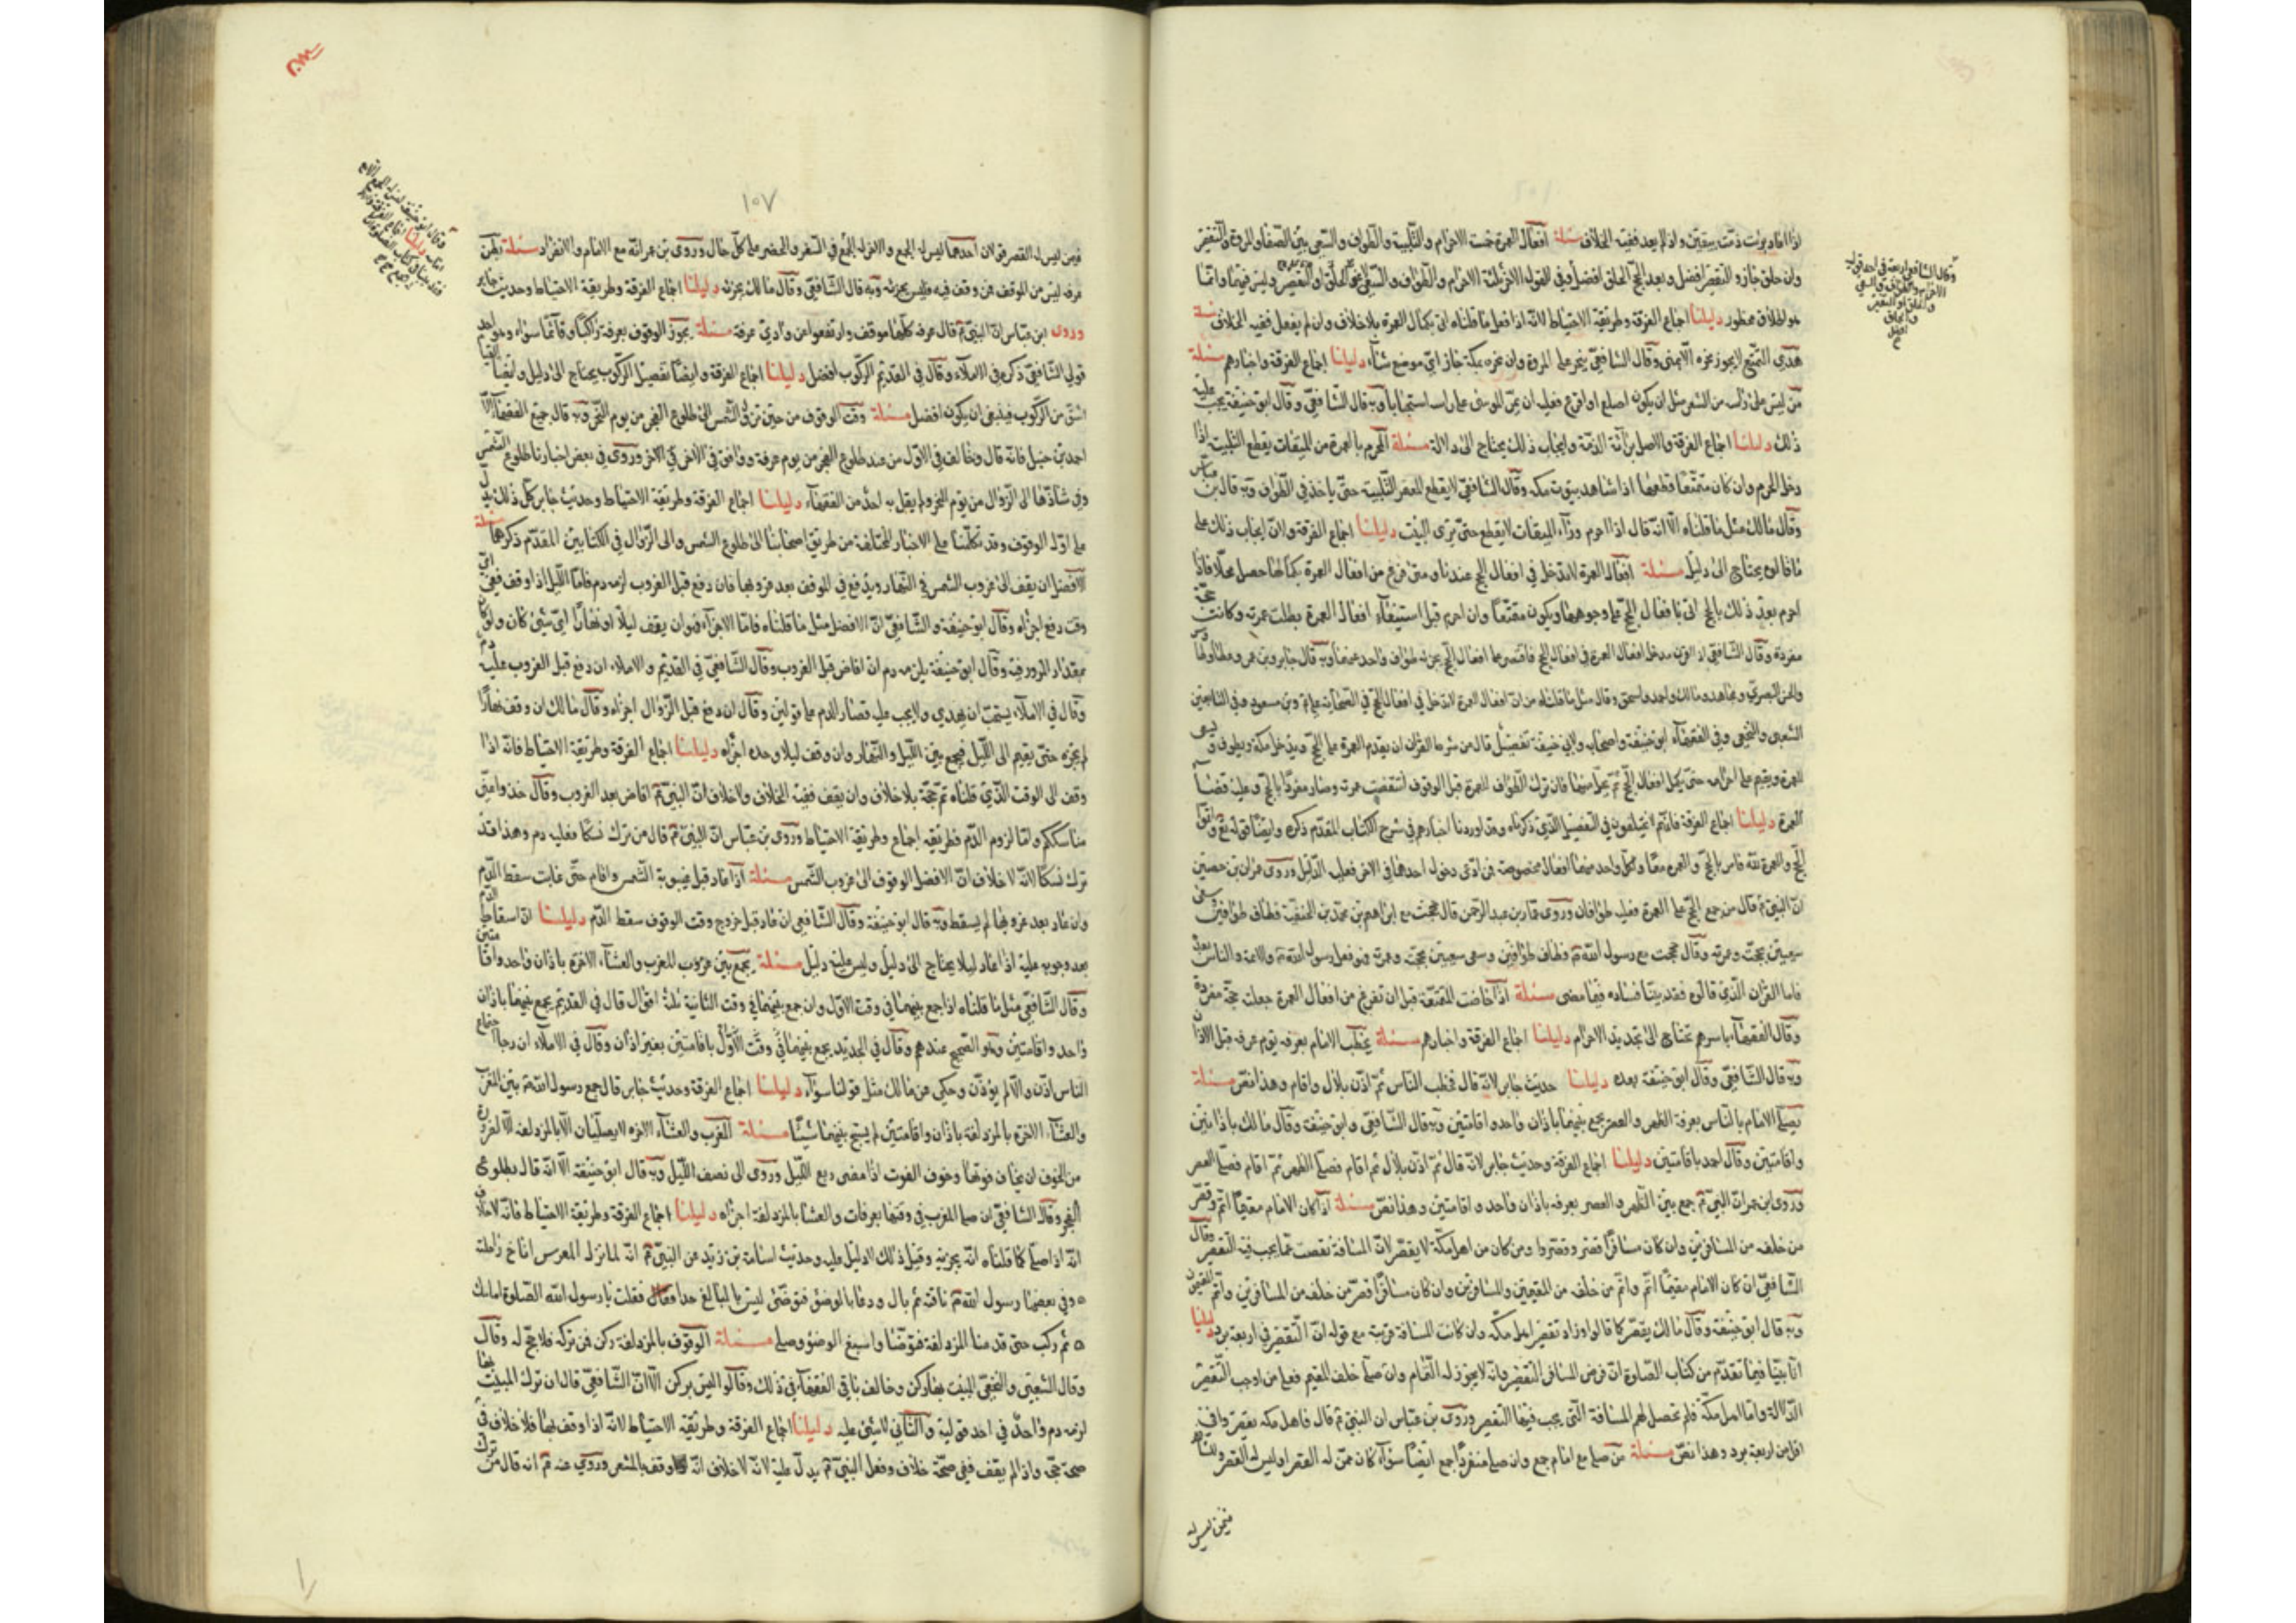 اذا اعاد برئت ذمته بيقين واذا لم يعد ففيه الخلاف مسئلة افعال العمرة خمسة الاحرام والتلبية والطواف والسعي بين الصفا والمروة والتقصير
وان حلق جاز والتقصير افضل وبعد الحج الحلق افضل وفي القول الاخر ثلثة الاحرام والطواف والسعي الحلق او التقصير وليس فيهما وانما
هو اطلاق محظور دليلنا اجماع الفرقة وطريقة الاحتياط لانه اذا فعل ما قلناه اتى بكمال العمرة بلا خلاف وان لم يفعل ففيه الخلاف مسئلة
هدي التمتع لا يجوز نحره الا بمنى وقال الشافعي ينحر على المروة وان نحره بمكة جاز اي موضع شاء دليلنا اجماع الفرقة واخبارهم مسئلة
من ليس على راسه من الشعر مثل ان يكون اصلع او اقرع فعليه ان يمر الموسى على راسه استحبابا وبه قال الشافعي وقال ابو حنيفة يجب عليه
ذلك دليلنا اجماع الفرقة والاصل برائة الذمة وايجاب ذلك يحتاج الى دلالة مسئلة المحرم بالعمرة من الميقات يقطع التلبية اذا
دخل الحرم وان كان متمتعا قطعها اذا شاهد بيوت مكة وقال الشافعي لا يقطع المعتمر التلبية حتى ياخذ في الطواف وبه قال بن عباس
وقال مالك مثل ما قلناه الا انه قال اذا احرم وراء الميقات لا يقطع حتى يرى البيت دليلنا اجماع الفرقة ولان ايجاب ذلك على
ما قالوه يحتاج الى دليل مسئلة افعال العمرة لا تدخل في افعال الحج عندنا ومتى فرغ من افعال العمرة بكمالها حصل محلا فاذا
احرم بعد ذلك بالحج اتى بافعال الحج على وجوهها ويكون متمتعا وان احرم قبل استيفاء افعال العمرة بطلت عمرته وكانت حجته
مفردة وقال الشافعي اذا قرن تدخل افعال العمرة في افعال الحج فاقتصر على افعال الحج يجزيه طواف واحد وبه قال جابر وبن عمر وعطا وطاوس
والحسن البصري ومجاهد ومالك واحمد واسحق وقال مثل ما قلناه من ان افعال العمرة لا تدخل في افعال الحج في الصحابة علي وبن مسعود وفي التابعين
الشعبي والنخعي وفي الفقهاء ابو حنيفة واصحابه ولابي حنيفة تفصيل قال من شرط القران ان يقدم العمرة على الحج ويدخل مكة ويطوف ويسعى
للعمرة ويقيم على احرامه حتى يكمل افعال الحج ثم يحل منهما فان ترك الطواف للعمرة قبل الوقوف انتقضت عمرته وصار مفردا بالحج وعليه قضاء
العمرة دليلنا اجماع الفرقة فانهم لا يختلفون في التفصيل الذي ذكرناه وقد اوردنا اخبارهم في شرح الكتاب المقدم ذكره وايضا قوله تع واتموا
الحج والعمرة لله فامر بالحج والعمرة معا ولكل واحد منهما افعال مخصوصة فمن ادعى دخول احدهما في الاخر فعليه الدليل وروى عمران بن حصين
ان النبي قال من جمع الحج على العمرة فعليه طوافان وروى حماد بن عبد الرحمن قال حججت مع ابراهيم بن محمد بن الحنفية فطاف طوافين وسعى
سعيين بحجته وعمرته وقال حججت مع رسول الله فطاف طوافين وسعى سعيين بحجته وعمرته
فاما القران الذي قالوه فقد بينا فساده فيما مضى مسئلة اذا حاضت المتمتعة قبل ان تفرغ من افعال العمرة جعلت حجة مفردة
وقال الفقهاء باسرهم تحتاج الى تجديد الاحرام دليلنا اجماع الفرقة واخبارهم مسئلة يخطب الامام بعرفة يوم عرفة قبل الاذان
وبه قال الشافعي وقال ابو حنيفة بعده دليلنا حديث جابر لانه قال فخطب الناس ثم اذن بلال واقام وهذا نص مسئلة
يصلي الامام بالناس بعرفة الظهر والعصر يجمع بينهما باذان واحد واقامتين وبه قال الشافعي وابو حنيفة وقال مالك باذانين
واقامتين وقال احمد باقامتين دليلنا اجماع الفرقة وحديث جابر لانه قال ثم اذن بلال ثم اقام فصلى الظهر ثم اقام فصلى العصر
وروى ابن عمر ان النبي جمع بين الظهر والعصر بعرفة باذان واحد واقامتين وهذا نص مسئلة اذا كان الامام مقيما اتم وقصر
من خلفه من المسافرين وان كان مسافرا قصر وقصروا ومن كان من اهل مكة لا يقصر لان المسافة نقصت عما يجب فيه التقصير وقال
الشافعي ان كان الامام مقيما اتم واتم من خلفه من المقيمين والمسافرين وان كان مسافرا قصر من خلفه من المسافرين واتم المقيمون
وبه قال ابو حنيفة وقال مالك يقصر كما قالوا وزاد تقصير اهل مكة وان كانت المسافة قريبة مع قوله ان التقصير في اربعة برد دليلنا
انا بينا فيما تقدم من كتاب الصلوة ان فرض المسافر التقصير وانه لا يجوز له التمام وان صلى خلف المقيم فعلى من اوجب التقصير
الدلالة واما اهل مكة فلم تحصل لهم المسافة التي يجب فيها التقصير وروى بن عباس ان النبي قال يا اهل مكة لا تقصروا في
اقل من اربعة برد وهذا نص مسئلة من صلى مع امام جمع وان صلى منفردا جمع ايضا سواء كان ممن له القصر او ليس له القصر
فيمن ليس له
وقال الشافعي اربعة في احد قوليه
الاحرام والطواف والسعي
والحلق او التقصير
١٠٧
فيمن ليس له القصر قولان احدهما ليس له الجمع والاخر له الجمع في السفر والحضر على كل حال وروى بن عمر انه مع الامام والانفراد مسئلة بطن
عرفة ليس من الموقف فمن وقف فيه فليس يجزيه وبه قال الشافعي وقال مالك يجزيه دليلنا اجماع الفرقة وطريقة الاحتياط وحديث جابر
وروى ابن عباس ان النبي قال عرفة كلها موقف وارتفعوا عن وادي عرفة مسئلة يجوز الوقوف بعرفة راكبا وقائما سواء وهو احد
قولي الشافعي ذكره في الاملاء وقال في القديم الركوب افضل دليلنا اجماع الفرقة وايضا تفضيل الركوب يحتاج الى دليل وايضا القيام
اشق من الركوب فينبغي ان يكون افضل مسئلة وقت الوقوف من حين تزول الشمس الى طلوع الفجر من يوم النحر وبه قال جميع الفقهاء الا
احمد بن حنبل فانه قال وخالف في الاول من عند طلوع الفجر من يوم عرفة ووافق في الاخر وروى في بعض اخبارنا طلوع الشمس
وفي شاذها الى الزوال من يوم النحر ولم يقل به احد من الفقهاء دليلنا اجماع الفرقة وطريقة الاحتياط وحديث جابر كل ذلك يدل
على اول الوقوف وقد تكلمنا على الاخبار المختلفة من طريق اصحابنا الى طلوع الشمس والى الزوال في الكتابين المقدم ذكرهما مسئلة
الافضل ان يقف الى غروب الشمس في النهار ويدفع في الموقف بعد غروبها فان دفع قبل الغروب لزمه دم فاما الليل اذا وقف ففي اي
وقت دفع اجزاه وقال ابو حنيفة والشافعي ان الافضل مثل ما قلناه فاما الاجزاء فهو ان يقف ليلا او نهارا اي شيء كان ولو كان
بمقدار المرور فيه وقال ابو حنيفة يلزمه دم ان افاض قبل الغروب وقال الشافعي في القديم والاملاء ان دفع قبل الغروب عليه دم
وقال في الاملاء يستحب ان يهدي ولا يجب عليه فصار الدم على قولين وقال ان دفع قبل الزوال اجزاه وقال مالك ان وقف نهارا
لم يجزه حتى يقيم الى الليل فيجمع بين الليل والنهار وان وقف ليلا وحده اجزاه دليلنا اجماع الفرقة وطريقة الاحتياط فانه اذا
وقف الى الوقت الذي قلناه تم حجه بلا خلاف وان لم يقف ففيه الخلاف ولا خلاف ان النبي افاض بعد الغروب وقال خذوا عني
مناسككم واما لزوم الدم فطريقه اجماع وطريقة الاحتياط وروى بن عباس ان النبي قال من ترك نسكا فعليه دم وهذا قد
ترك نسكا لانه لا خلاف ان الافضل الوقوف الى غروب الشمس مسئلة اذا عاد قبل غيبوبة الشمس واقام حتى غابت سقط الدم
وان عاد بعد غروبها لم يسقط وبه قال ابو حنيفة وقال الشافعي ان عاد قبل خروج وقت الوقوف سقط الدم دليلنا ان اسقاط الدم
بعد وجوبه عليه اذا عاد ليلا يحتاج الى دليل وليس عليه دليل مسئلة يجمع بين المغرب والعشاء الاخرة باذان واحد واقامتين
وقال الشافعي مثل ما قلناه اذا جمع بينهما في وقت الاول وان جمع بينهما في وقت الثانية ثلث اقوال قال في القديم يجمع بينهما باذان
واحد واقامتين وهو الصحيح عندهم وقال في الجديد يجمع بينهما في وقت الاول باقامتين بغير اذان وقال في الاملاء ان رجا اجتماع
الناس اذن والا لم يؤذن وحكى عن مالك مثل قولنا سواء دليلنا اجماع الفرقة وحديث جابر قال جمع رسول الله بين المغرب
والعشاء الاخرة بالمزدلفة باذان واقامتين لم يسبح بينهما شيئا مسئلة المغرب والعشاء الاخرة لا يصليان الا بالمزدلفة الا لضرورة
من الخوف ان يخاف فوتها وخوف الفوت اذا مضى ربع الليل وروى الى نصف الليل وبه قال ابو حنيفة الا انه قال بطلوع
الفجر وقال الشافعي ان صلى المغرب في وقتها بعرفات والعشا بالمزدلفة اجزاه دليلنا اجماع الفرقة وطريقة الاحتياط فانه لا خلاف
انه اذا صلى كما قلناه انه يجزيه وقيل ذلك الدليل عليه وحديث اسامة بن زيد عن النبي انه لما نزل المعرس اناخ راحلته
وفي بعضها رسول الله ناقته ثم بال ودعا بالوضوء فتوضئ ليس بالبالغ جدا فقلت يا رسول الله الصلوة امامك
ثم ركب حتى قدمنا المزدلفة فتوضا واسبغ الوضوء وصلى مسئلة الوقوف بالمزدلفة ركن فمن تركه فلا حج له وقال
وقال الشعبي والنخعي المبيت بها ركن وخالف باقي الفقهاء في ذلك وقالوا ليس بركن الا ان الشافعي قال ان ترك المبيت بها
لزمه دم واحد في احد قوليه والثاني لا شيء عليه دليلنا اجماع الفرقة وطريقة الاحتياط لانه اذا وقف بها فلا خلاف في
صحة حجه واذا لم يقف ففي صحته خلاف وفعل النبي يدل عليه لانه لا خلاف انه وقف بالمشعر وروي عنه انه قال من ترك